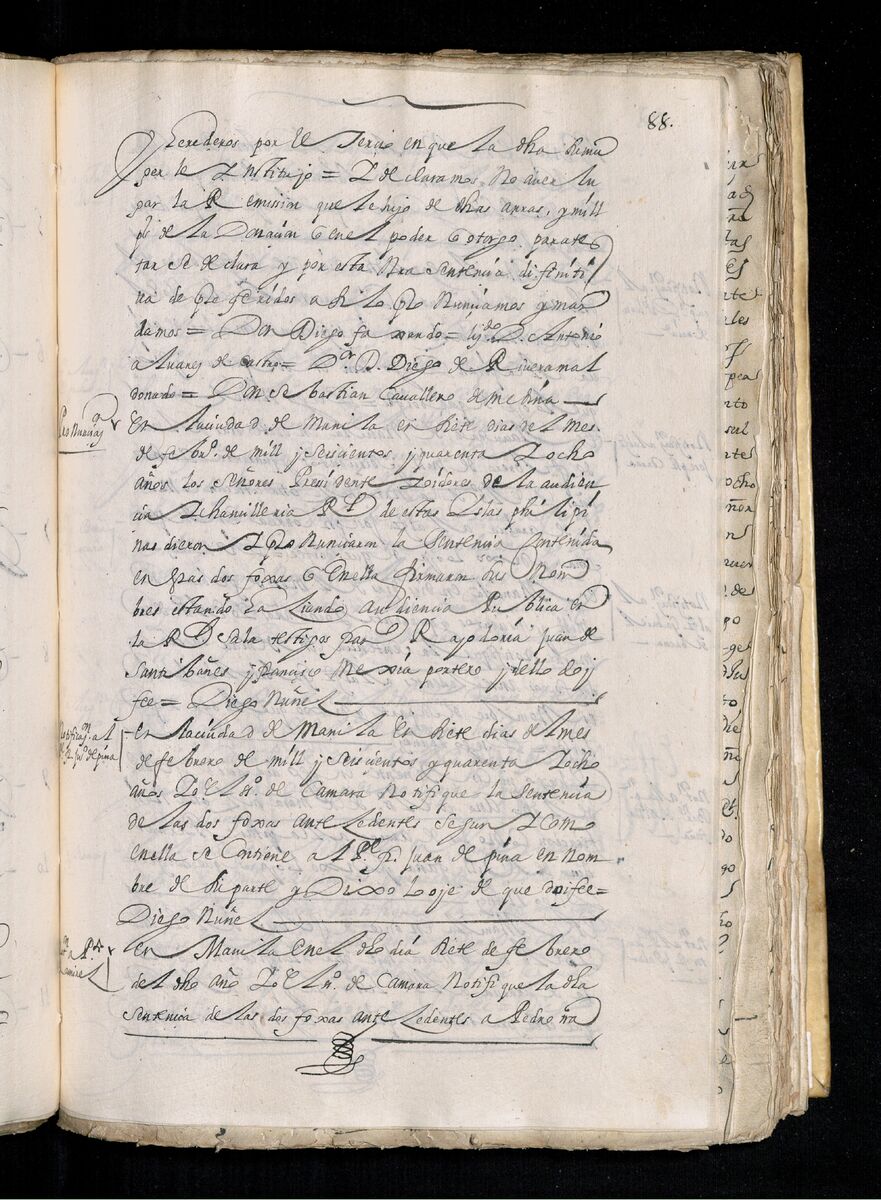 88.
Herederos por el Tercio en que la dha Ximu
per le Instituyo = Y declaramos No aver lu
gar la Remission que le hijo de dhas arras, y mill
ps de la Donacion en el poder otorgo para tes
tar se declara y por esta nra sentencia difiniti
va de
damos = Don Diego faxardo = lizdo D. Antonio
aluarez de castro = Dor D. Diego de Riuera mal
donado = Don sebastian cauallero de medina
Pronunciaçon
En la ciudad de Manila en siete dias del mes
de febro. de mill y seiscientos y quarenta y ocho
años los señores Presidente y oidores de la audien
cia y chancilleria Rl de estas Yslas philipi
nas dieron y pronunciaron la sentencia contenida
en estas dos foxas en ella firmaron sus nom
bres estando haciendo audiencia Publica en
la Rl sala testigos Rajo doria juan de
santibañes y francisco Mexia portero y dello doy
fee = Diego Nuñez
Notificaçon al
En la ciudad de Manila en siete dias del mes
de febrero de mill y seiscientos y quarenta y ocho
años Yo el sno. de Camara Notifique la sentencia
de las dos foxas antecedentes segun y como
en ella se contiene al Pe fr. juan de pina en nom
bre de su parte y Dixo lo oye de que doi fee =
Diego Nuñez
en Manila en el dho dia siete de febrero
del dho año Yo el sno. de Camara Notifique la dha
sentencia de las dos foxas antecedentes a Pedro